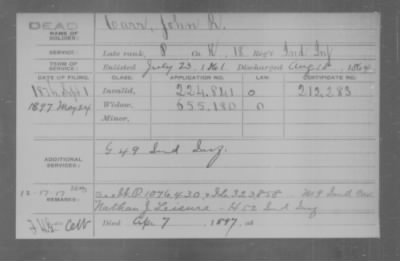 DEAD Carr, John R.
NAME OF SOLDIER:
SERVICE: Late rank, P Co. K, 18 Reg't Ind Inf
TERM OF SERVICE: Enlisted July 23, 1861 Discharged Aug 18, 1864
DATE OF FILING. CLASS. APPLICATION NO. LAW. CERTIFICATE NO.
1876 Sept 1 Invalid, 224.841 0 212,283
1897 May 24 Widow, 655.180 0
Minor,
ADDITIONAL SERVICES: G 49 Ind Inf.
12-17-17
REMARKS: 1076430 323858
Nathan J. Leisure - H 52 Ind Inf
Died Apr 7, 1897, at